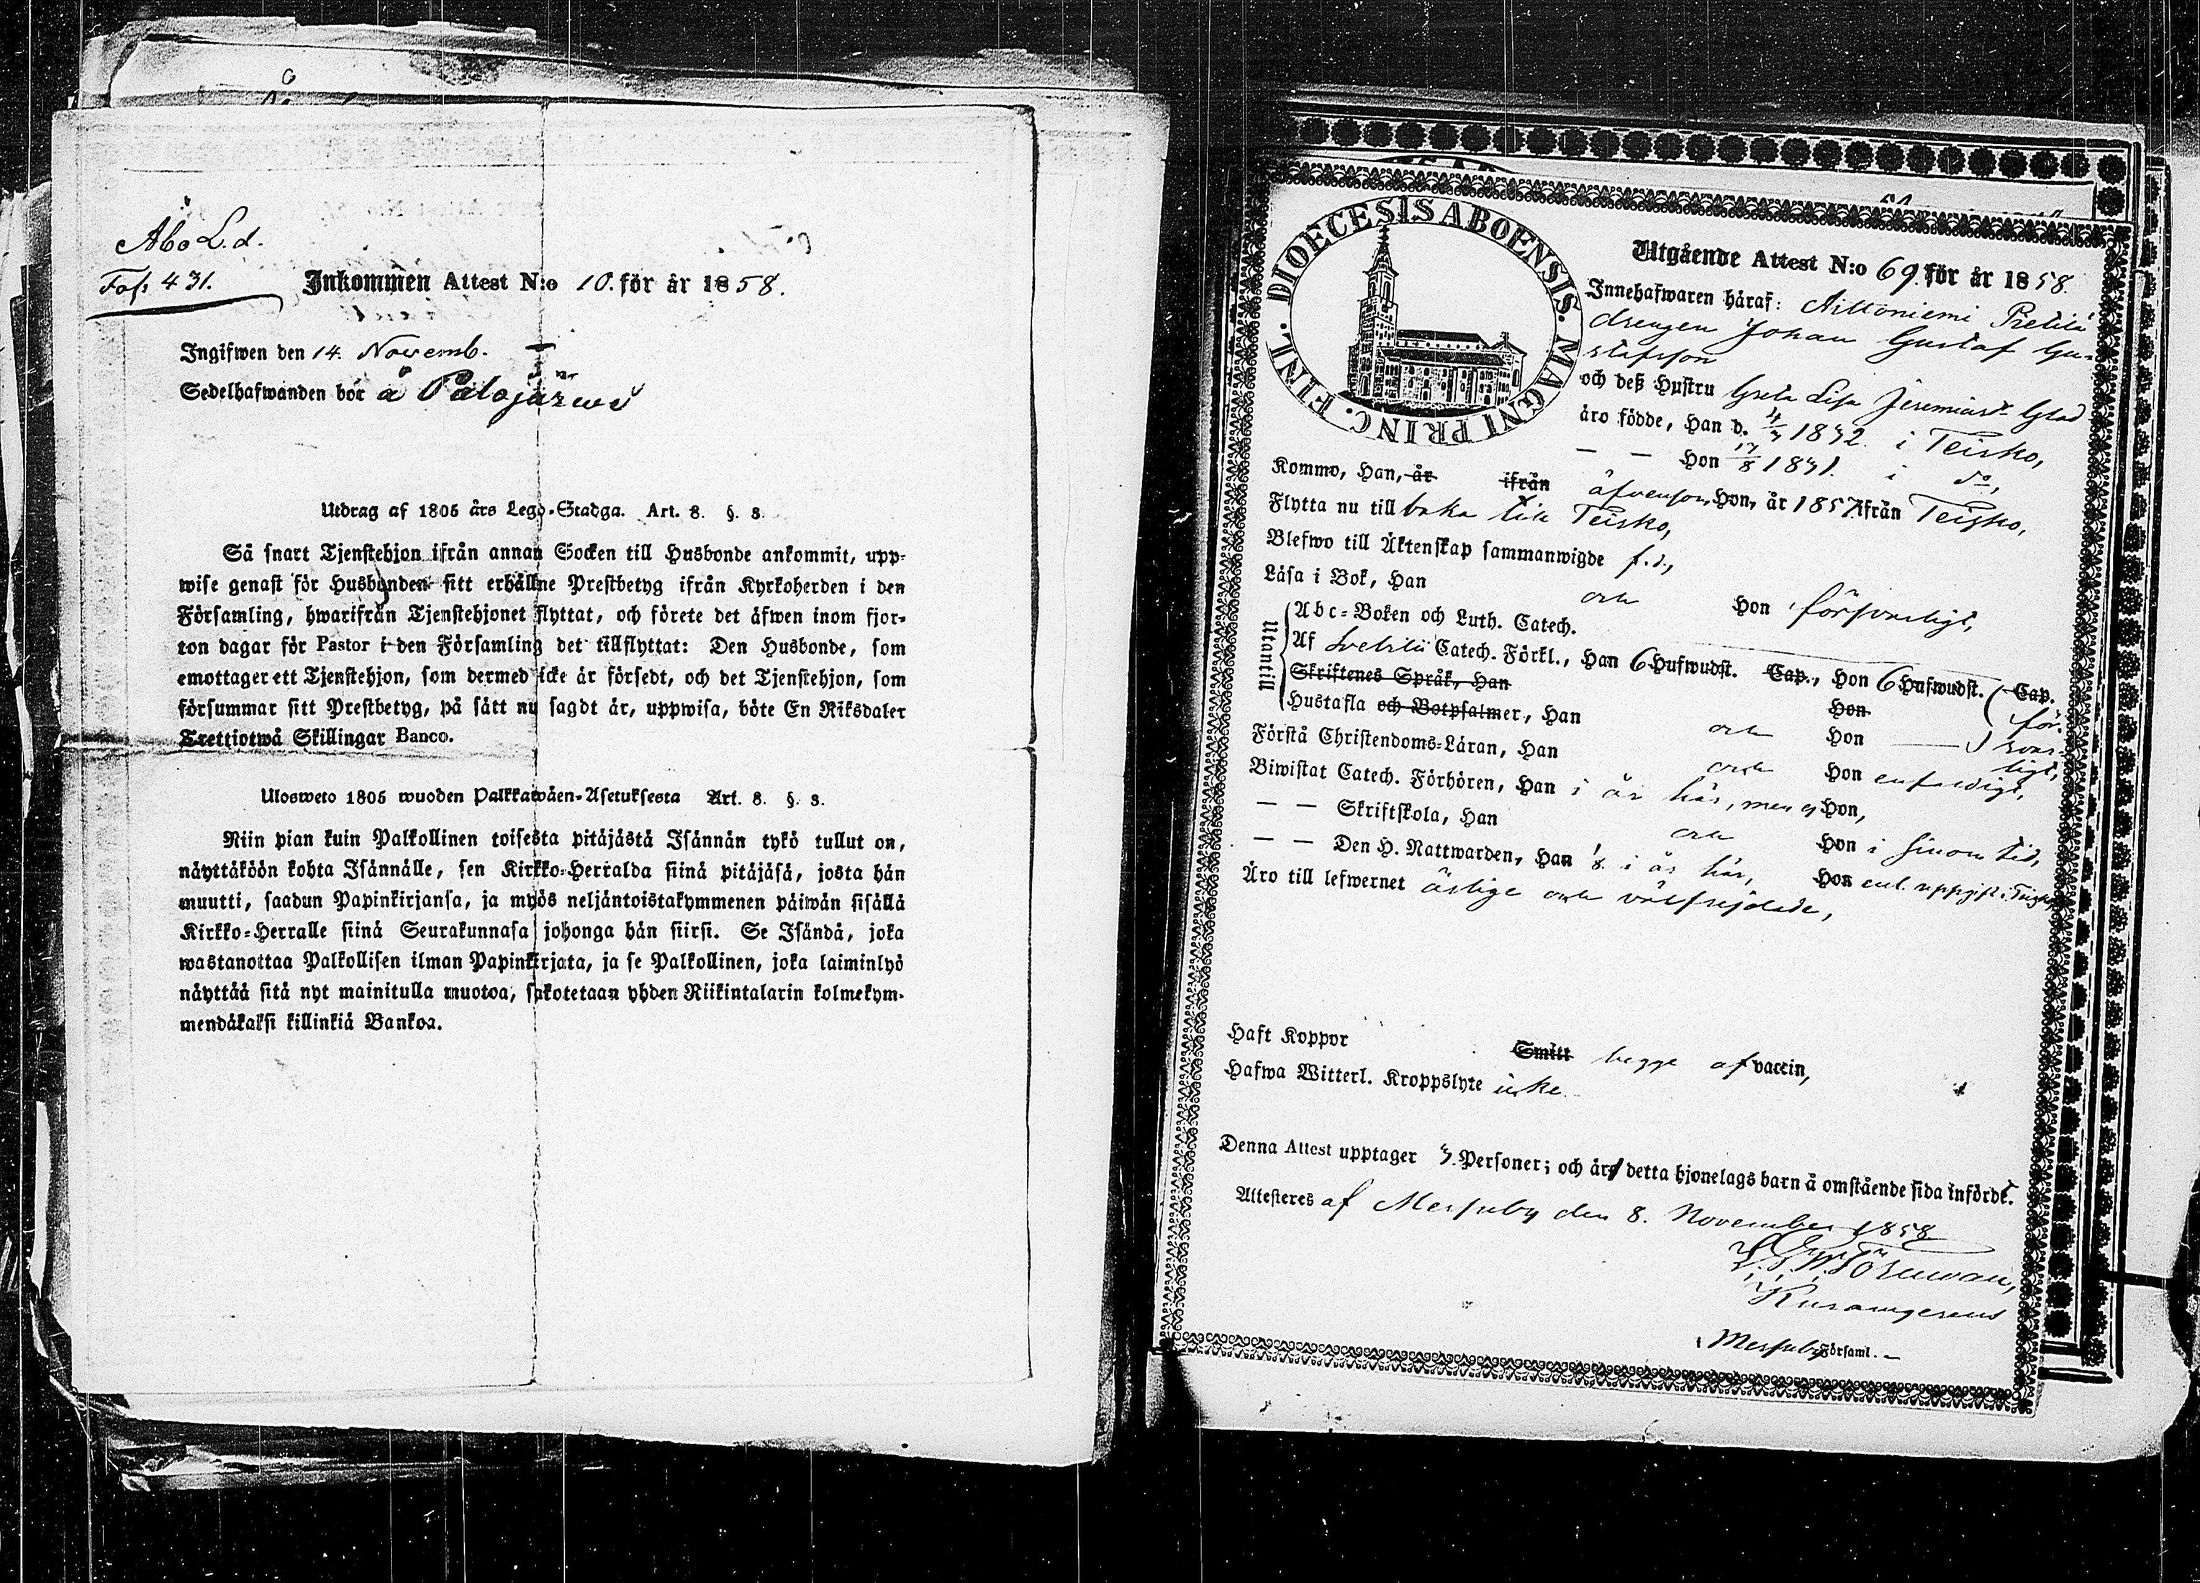 Åbo L. d.
Fol. 431.
Inkommen Attest N:o 10. för år 1858.
Ingifwen den 14. Novemb.
Sedelhafwanden bor å Palojärwi
Utdrag af 1805 års Lego-Stadga. Art. 8. §. 3.
Så snart Tjenstehjon ifrån annan Socken till Husbonde ankommit, upp-
wise genast för Husbonden sitt erhållne Prestbetyg ifrån Kyrkoherden i den
Församling, hwarifrån Tjenstehjonet flyttat, och förete det äfwen inom fjor-
ton dagar för Pastor i den Församling det tillflyttat: Den Husbonde, som
emottager ett Tjenstehjon, som dermed icke är försedt, och det Tjenstehjon, som
försummar sitt Prestbetyg, på sätt nu sagdt är, uppwisa, böte En Riksdaler
Trettiotwå Skillingar Banco.
Ulosweto 1805 wuoden Palkkawäen-Asetuksesta Art. 8. §. 3.
Niin pian kuin Palkollinen toisesta pitäjästä Isännän tykö tullut on,
näyttäköön kohta Isännälle, sen Kirkko-Herralda siinä pitäjäsä, josta hän
muutti, saadun Papinkirjansa, ja myös neljäntoistakymmenen päiwän sisällä
Kirkko-Herralle siinä Seurakunnasa johonga hän siirsi. Se Isändä, joka
wastanottaa Palkollisen ilman Papinkirjata, ja se Palkollinen, joka laiminlyö
näyttää sitä nyt mainitulla muotoa, sakotetaan yhden Riikintalarin kolmekym-
mendäkaksi killinkiä Bankoa.
DIOECESIS ABOENSIS. MAGNI PRINC. FINL.
Utgående Attest N:o 69. för år 1858
Innehafwaren häraf: Aittoniemi Prettilä
drengen Johan Gustaf Gu-
stafsson
och deß Hustru Greta Lisa Jeremiasd:r Glad
äro födde, Han d. 4/3 1832. i Teisko,
— — Hon 17/8 1831. i d:o,
Kommo, Han, år ifrån äfvensom, Hon, år 1857 ifrån Teisko,
Flytta nu till baka till Teisko,
Blefwo till Äktenskap sammanwigde f. d.,
Läsa i Bok, Han och Hon försvarligt,
Utantill
Abc-Boken och Luth. Catech.
Af Svebilii Catech. Förkl., Han 6 Hufwudst. Cap., Hon 6 Hufwudst. Cap.
Skriftenes Språk, Han Hon för-
Hustafla och Botpsalmer, Han och Hon svar-
ligt,
Förstå Christendoms-Läran, Han och Hon enfaldigt,
Biwistat Catech. Förhören, Han i år här, men ej Hon,
— — Skriftskola, Han och Hon i sinom tid,
— — Den H. Nattwarden, Han 1/8. i år här, Hon enl. uppgift i Teisko
Äro till lefwernet ärlige och välfrejdade,
Haft Koppor Smitt begge af vaccin,
Hafwa Witterl. Kroppslyte icke.
Denna Attest upptager 3. Personer; och äro detta hjonelags barn å omstående sida införde.
Attesteres af Messuby den 8. November 1858
Messuby Församl. —